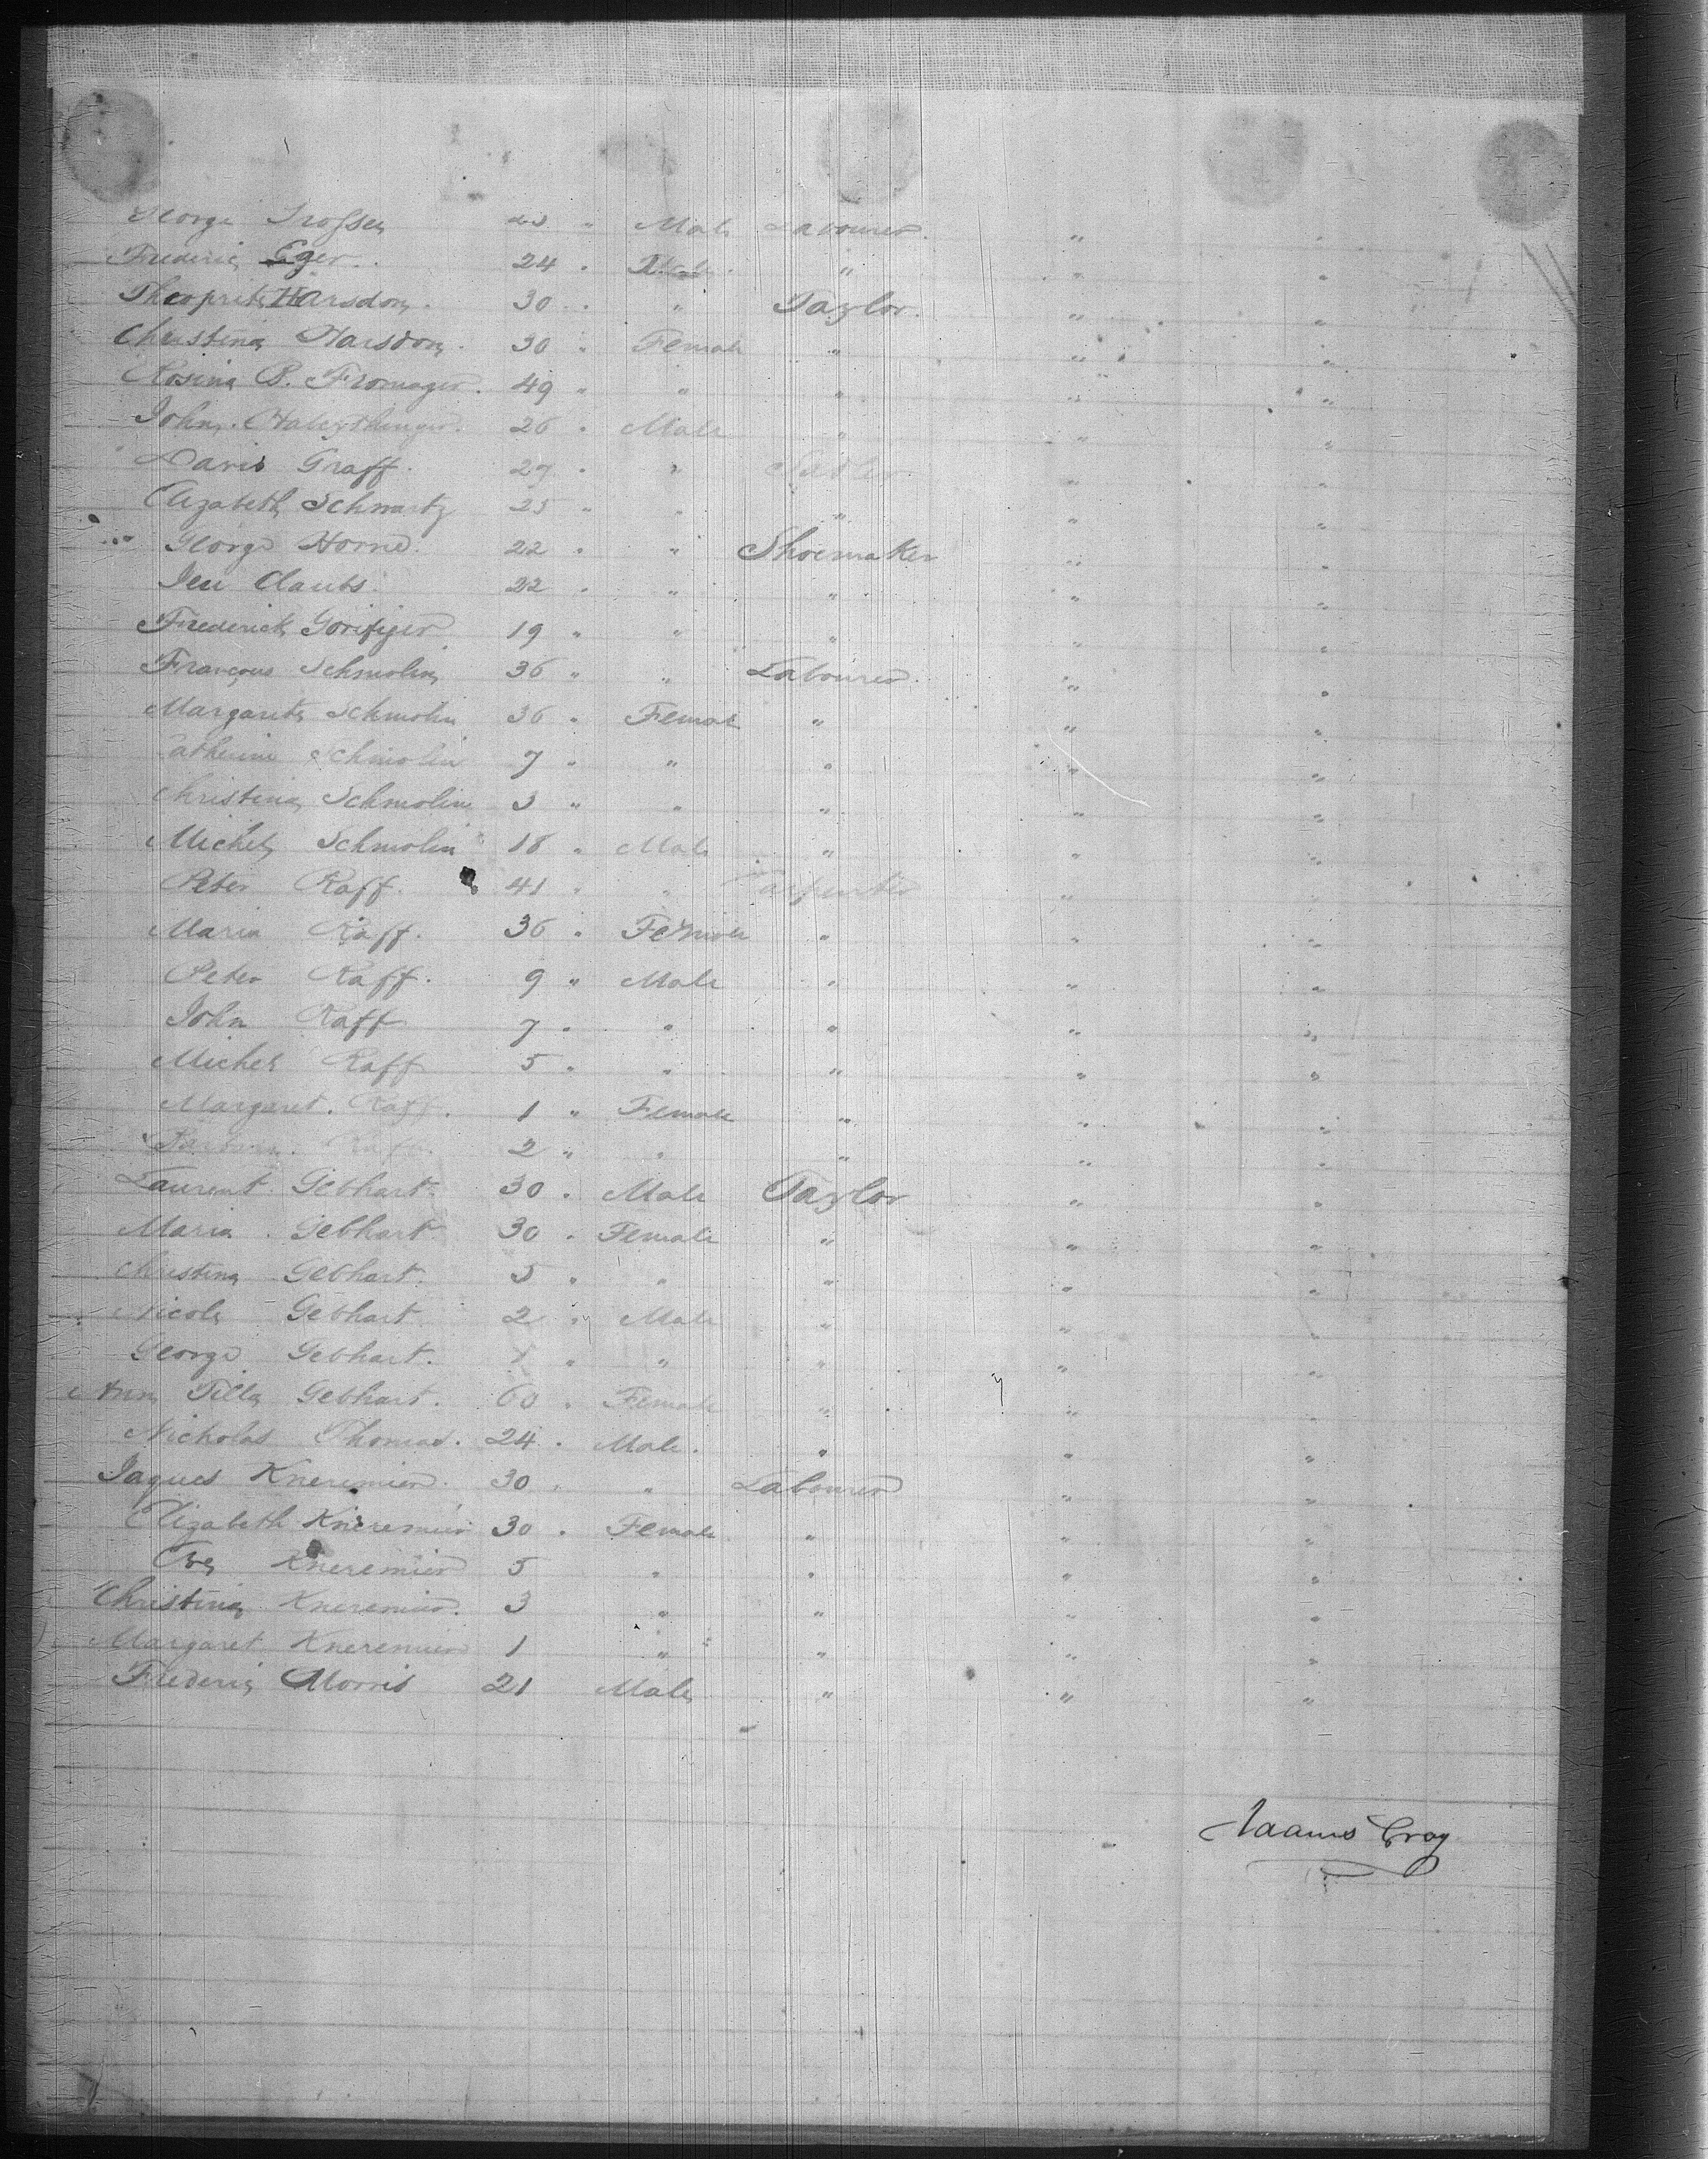 George " Male Labourer " "
Frederic Eger 24 " Male " " "
Harsdon 30 " " Taylor " "
Christina Harsdon 30 " Female " " "
Rosina B. Fromager 49 " " " " "
John 26 " Male " " "
David Graff 27 " " Sadler " "
Elizabeth Schwartz 25 " " " " "
George Horne 22 " " Shoemaker " "
22 " " " " "
Frederick 19 " " " " "
François Schmolin 36 " " Labourer " "
Margarite Schmolin 36 " Female " " "
Catherine Schmolin 7 " " " " "
Christina Schmolin 3 " " " " "
Michel Schmolin 18 " Male " " "
Peter Raff. 41 " " Carpenter " "
Maria Raff. 36 " Female " " "
Peter Raff. 9 " Male " " "
John Raff 7 " " " " "
Michel Raff 5 " " " " "
Margaret. Raff. 1 " Female " " "
Raff. 2 " " " " "
Laurent Gebhart 30 " Male Taylor " "
Maria Gebhart 30 " Female " " "
Christina Gebhart. 5 " " " " "
Nicole Gebhart 2 " Male " " "
George Gebhart. " " " " "
Ann Gebhart. 60 " Female " " "
Nicholas Thomas. 24 " Male. " " "
Jaques Kneremier 30 " " Labourer " "
Elizabeth Kneremier 30 " Female " " "
Eve Kneremier 5 " " " "
Christina Kneremier. 3 " " " "
Margaret Kneremier 1 " " " "
Frederic Morris 21 Male " " "
Adams Gray